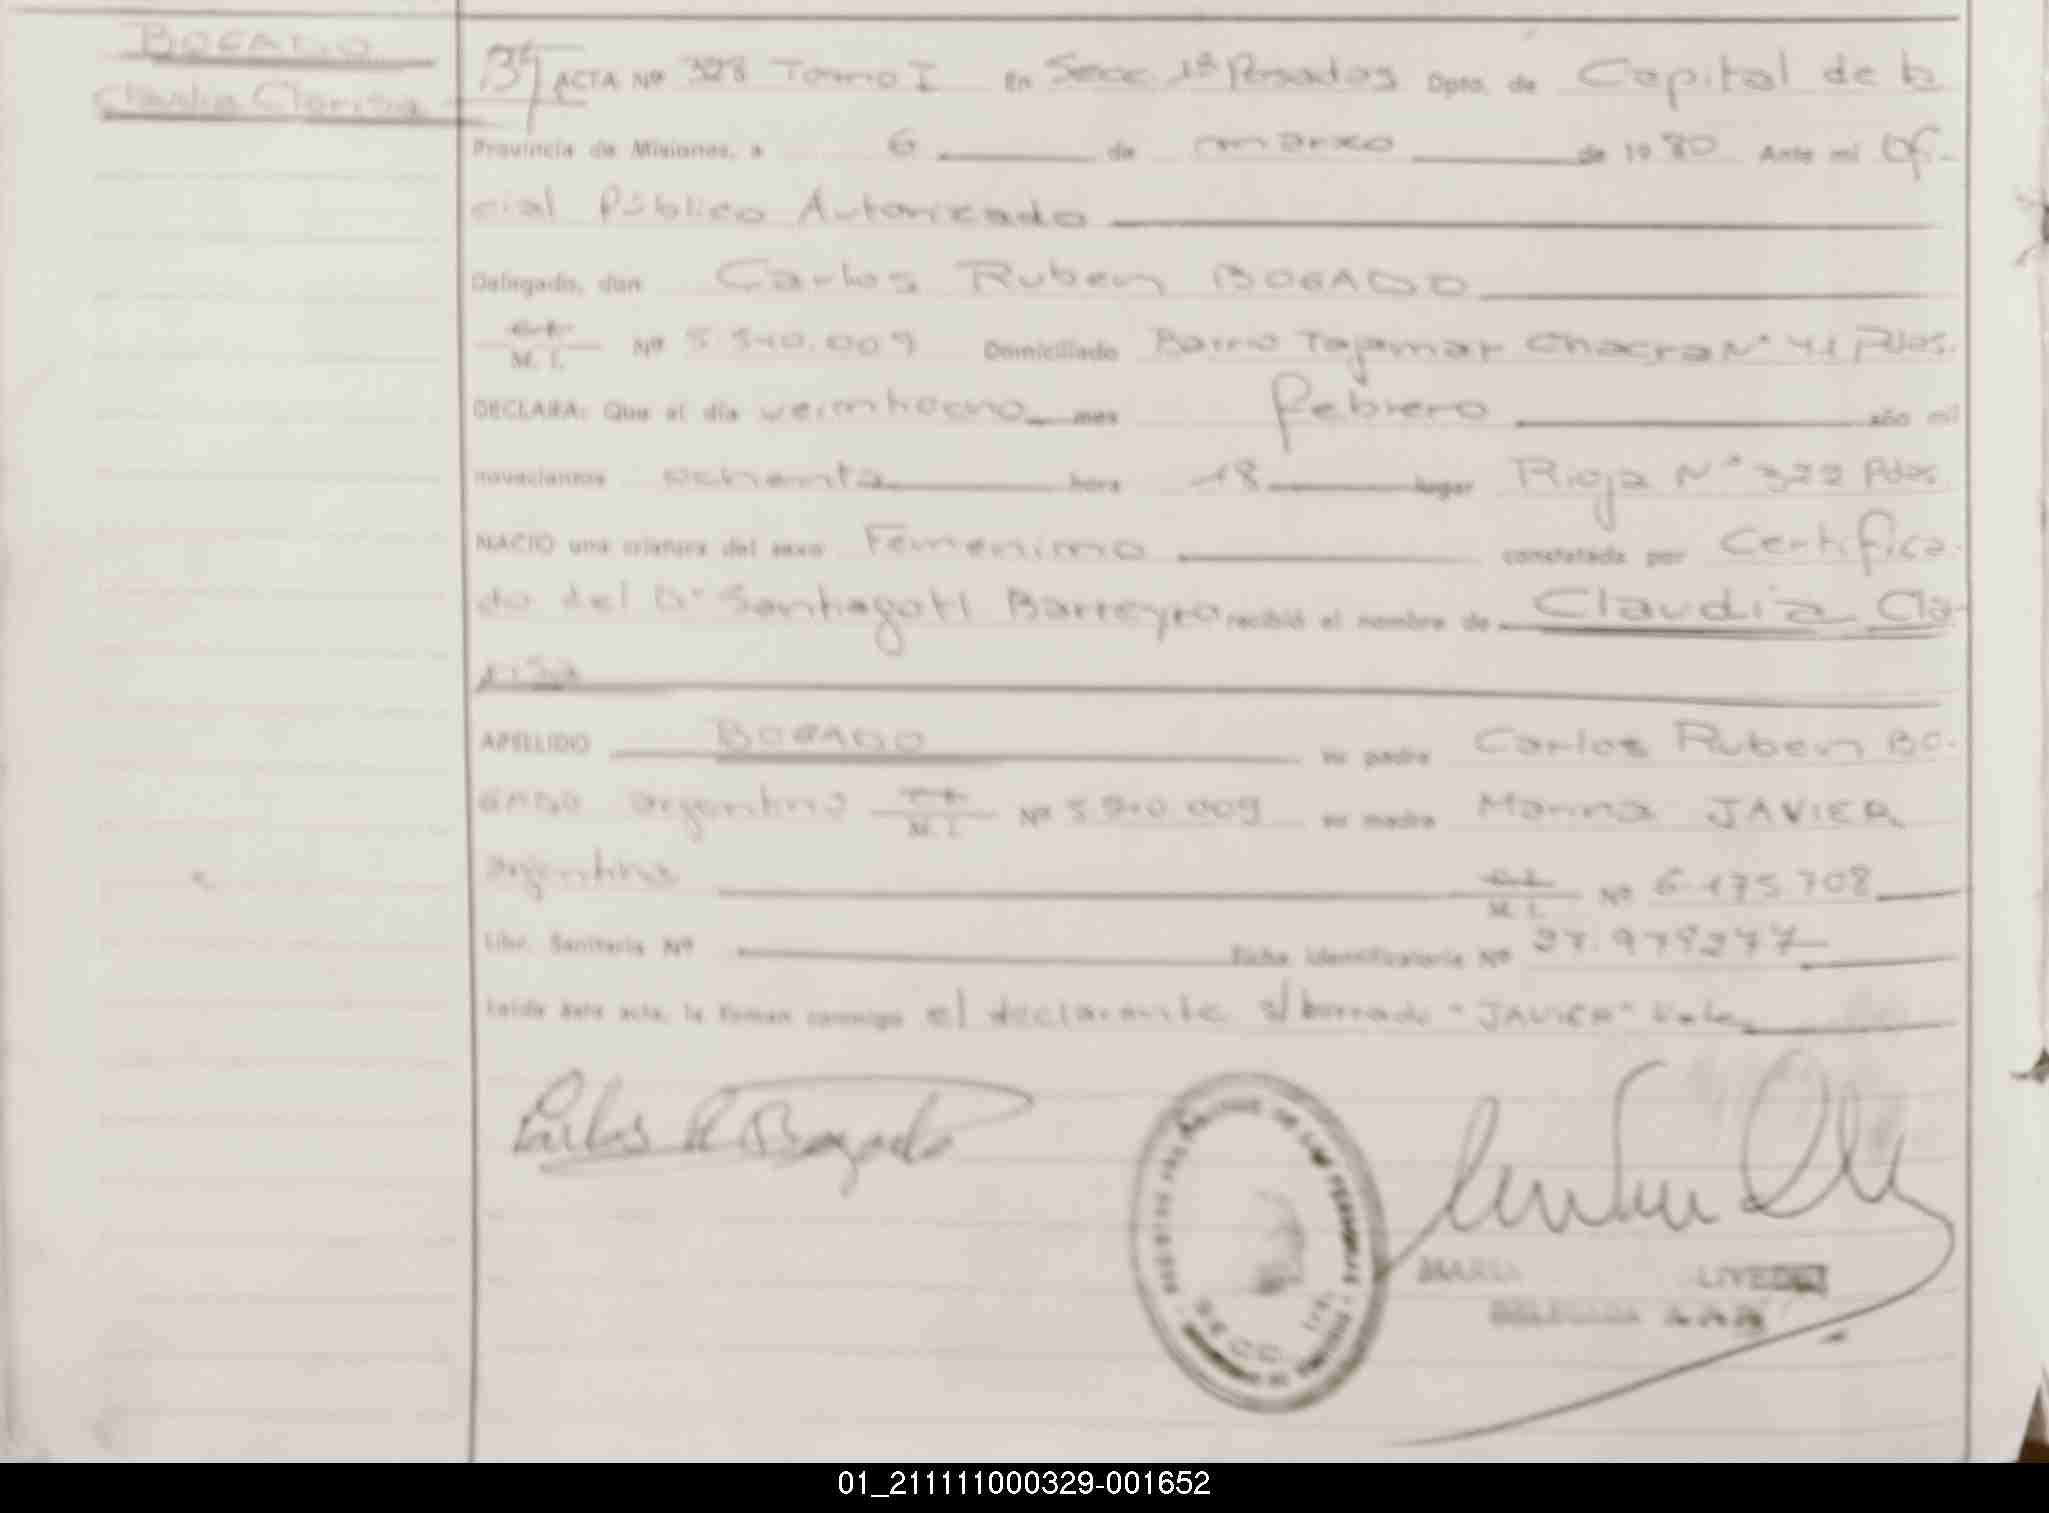 BOGADO
Claudia Clarisa
ACTA Nº 328 Tomo I En Secc. 1ª Posadas Dpto. de Capital de la
Provincia de Misiones, a 6 de marzo de 1980 Ante mi Ofi-
cial Público Autorizado
Delegado, don Carlos Ruben BOGADO
M. I. Nº 5.540.009 Domiciliado Barrio Tajamar Chacra Nº 41 Pdas.
DECLARA: Que el día veintiocho mes febrero año mil
novecientos ochenta hora 18 lugar Rioja Nº 322 Pdas.
NACIO una criatura del sexo Femenino constatada por Certifica-
do del Dr Santiago H Barreyro recibió el nombre de Claudia Cla-
risa
APELLIDO BOGADO su padre Carlos Ruben BO-
GADO argentino M. I. Nº 009 su madre Marina JAVIER
argentina M. I. Nº 6.175.708
Libr. Sanitaria Nº Ficha identificatoria Nº 27.979277
Leída ésta acta, la firman conmigo el declarante s/borrado "JAVIER" Vale
Carlos R Bogado
DE LAS PERSONAS
SECC
MARIA
DELEGADA
01_211111000329-001652